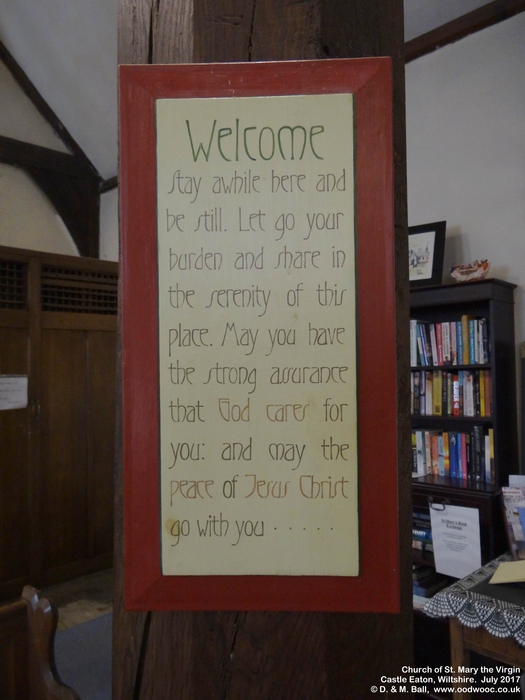 Welcome
Stay awhile here and
be still. Let go your
burden and share in
the serenity of this
place. May you have
the strong assurance
that God cares for
you: and may the
peace of Jesus Christ
go with you . . . . .
Church of St. Mary the Virgin
Castle Eaton, Wiltshire. July 2017
© D. & M. Ball, www.oodwooc.co.uk